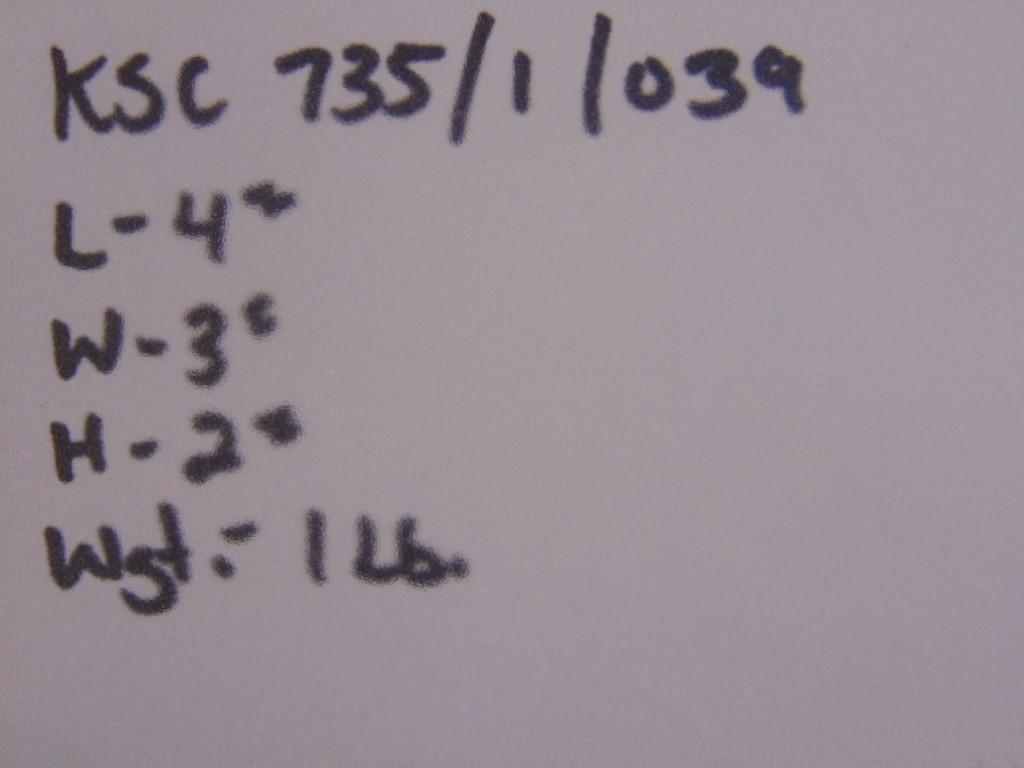 KSC 735/1/039
L-4"
W-3"
H-2"
Wgt.- 1 Lb.